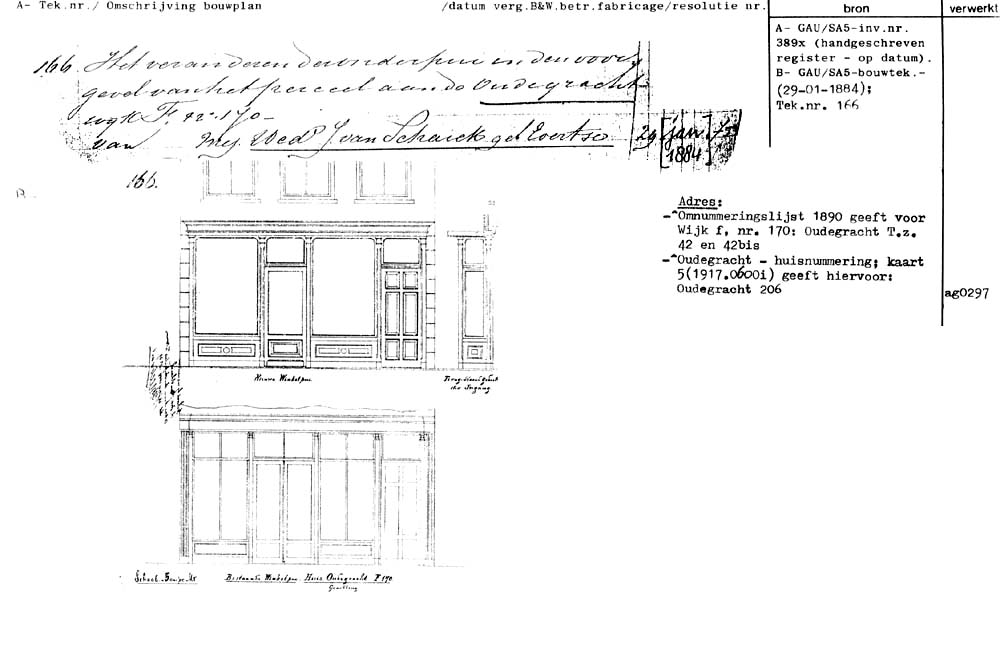 A- Tek.nr./ Omschrijving bouwplan /datum verg.B&W.betr.fabricage/resolutie nr.
bron
verwerkt
166. Het veranderen der onderpui in den voor-
gevel van het perceel aan de Oudegracht
wyk F. nº. 170-
van Mej. Wed J. van Schaick geb Evertse 29 jan.
1884
A- GAU/SA5-inv.nr.
389x (handgeschreven
register - op datum).
B- GAU/SA5-bouwtek.-
(29-01-1884);
Tek.nr. 166
B-
166.
Adres:
-^Omnummeringslijst 1890 geeft voor
Wijk f, nr. 170: Oudegracht T.z.
42 en 42bis
-^Oudegracht - huisnummering; kaart
5(1917.0600i) geeft hiervoor:
Oudegracht 206
ag0297
Nieuwe Winkelpui
Ingang
Schaal
Bestaande Winkelpui Huis Oudegracht F 170